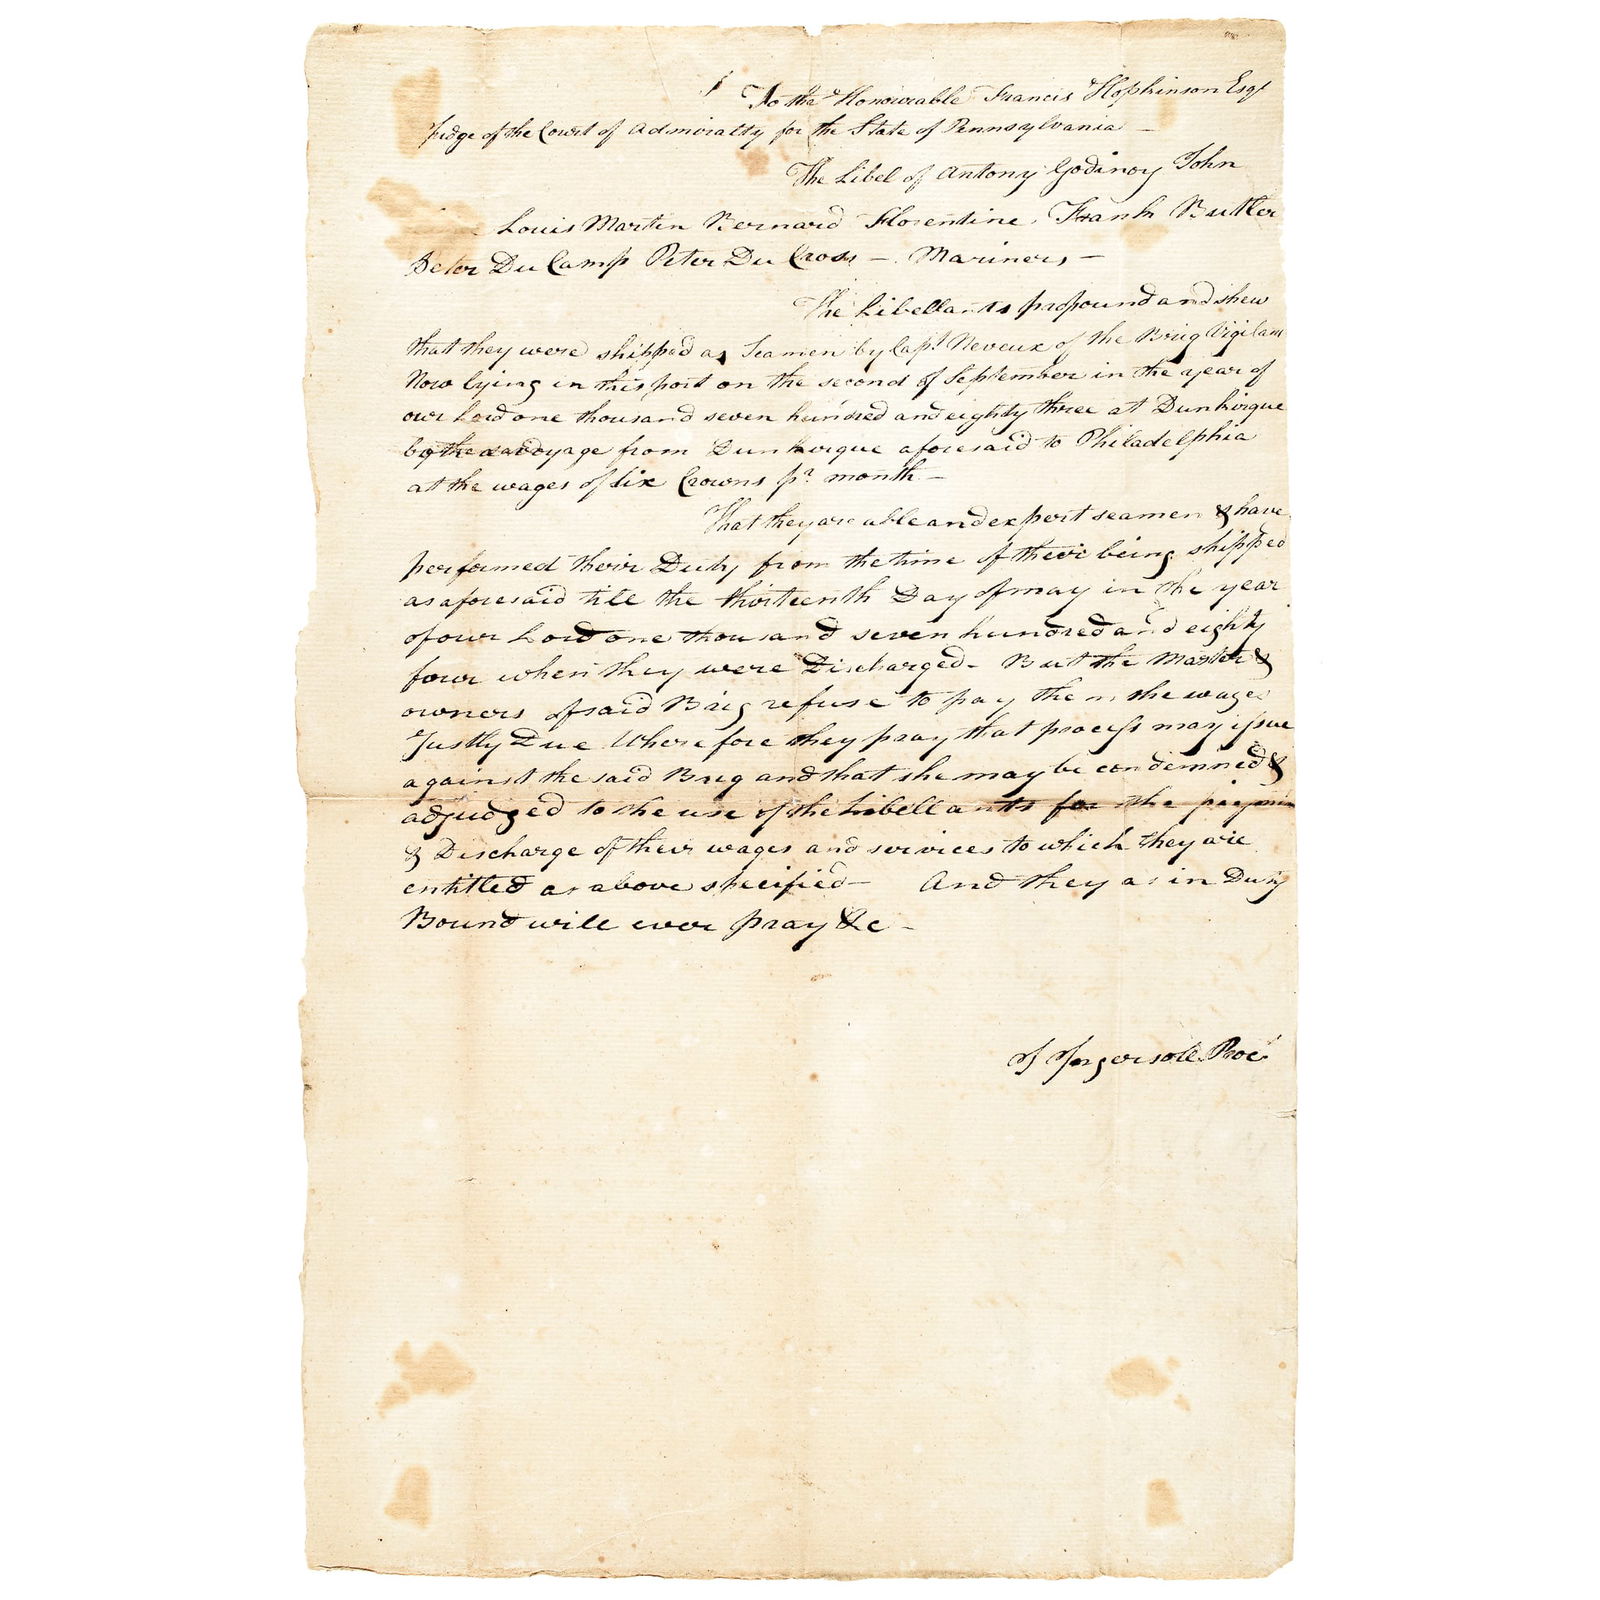 To the Honourable Francis Hopkinson Esqr
Judge of the Court of Admiralty for the State of Pennsylvania —
The Libel of Antony Godinoy John
Louis Martin Bernard Florentine Frank Butler
Peter Du Camp Peter Du Cross — Mariners —
The Libellants propound and shew
that they were shipped as Seamen by Capt. Neveux of the Brig Vigilant
Now lying in this port on the second of September in the year of
our Lord one thousand seven hundred and eighty three at Dunkirque
voyage from Dunkirque aforesaid to Philadelphia
at the wages of six Crowns pr. month —
That they are able and expert seamen & have
performed their Duty from the time of their being shipped
as aforesaid till the thirteenth Day of may in the year
of our Lord one thousand seven hundred and eighty
four when they were Discharged - But the Master &
owners of said Brig refuse to pay them the wages
Justly Due Wherefore they pray that process may issue
against the said Brig and that she may be condemned &
adjudged to the use of the Libellants for the paymen
& Discharge of their wages and services to which they are
entitled as above specified — And they as in Duty
Bound will ever pray &c —
J Ingersoll Proc.